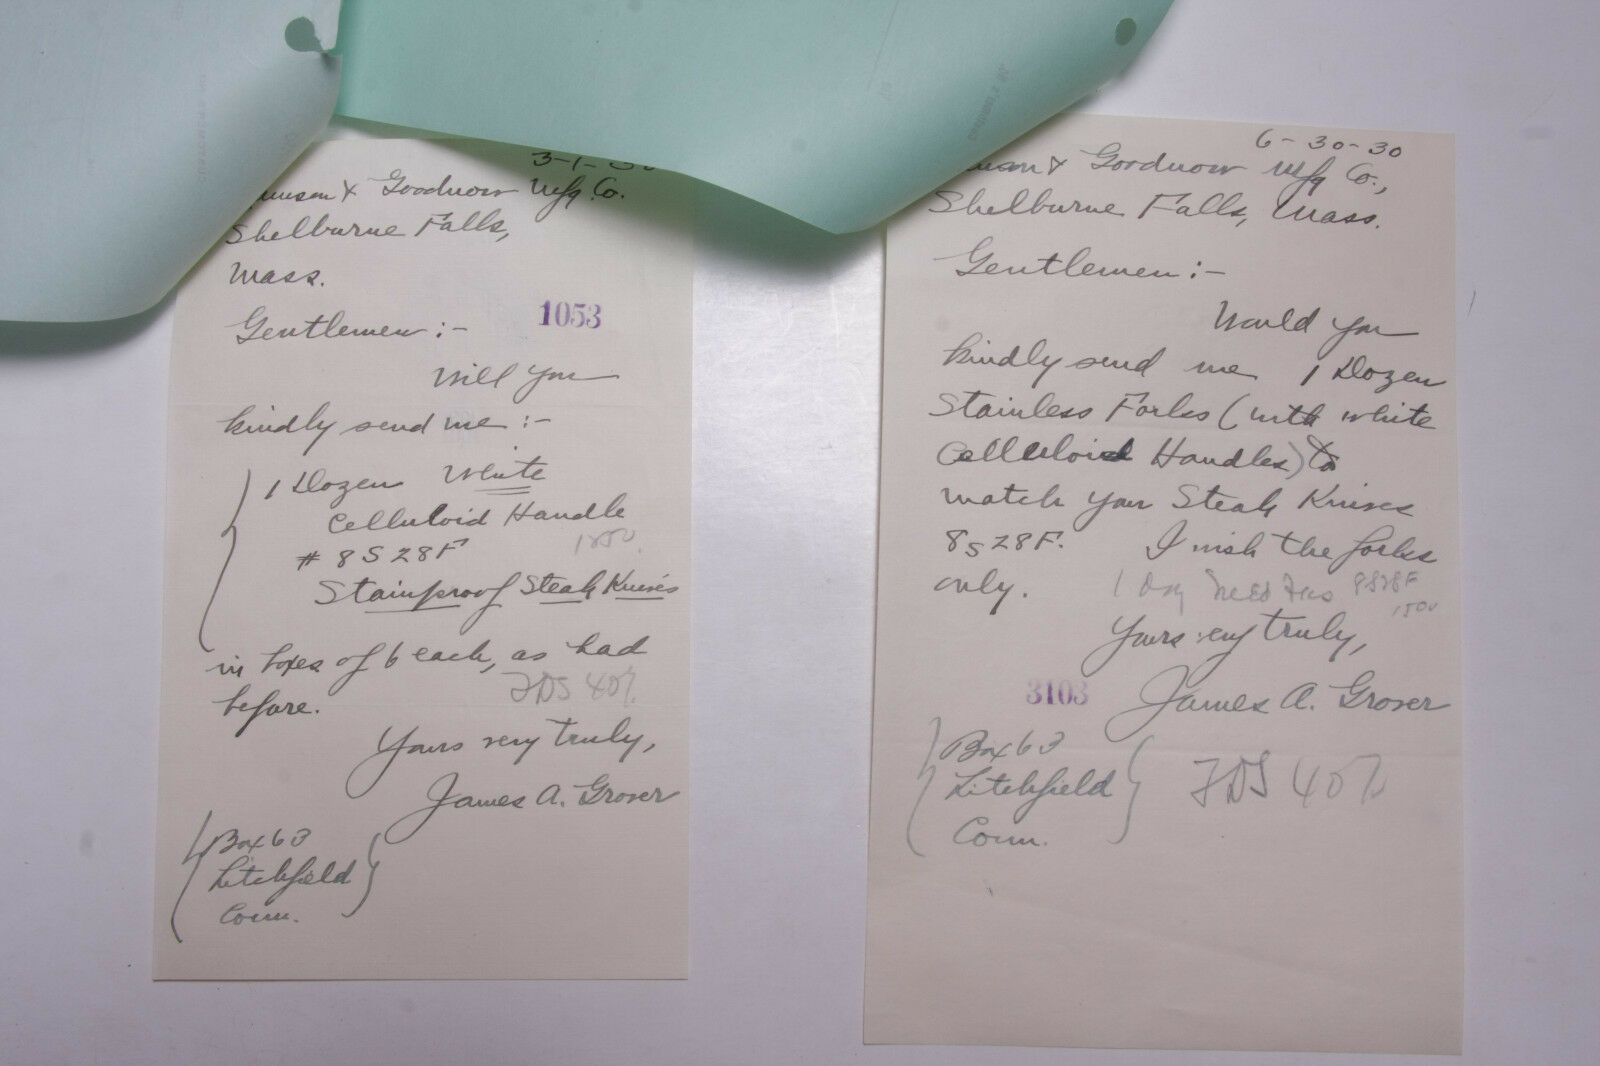 3-1-30
& Goodnow Mfg Co.
Shelburne Falls,
Mass.
1053
Gentlemen :-
Will you
kindly send me :-
1 Dozen White
Celluloid Handle
# 8S28F
Stainproof Steak Knives
in boxes of 6 each, as had
before.
FDS 40%
Yours very truly,
James A. Grover
Box 63
Litchfield
Conn.
6-30-30
& Goodnow Mfg Co.,
Shelburne Falls, Mass.
Gentlemen :-
Would you
kindly send me 1 Dozen
Stainless Forks (with white
Celluloid Handles) to
match your Steak Knives
8S28F. I wish the forks
only.
8S28F
Yours very truly,
3103
James A. Grover
Box 63
Litchfield
Conn.
FDS 40%